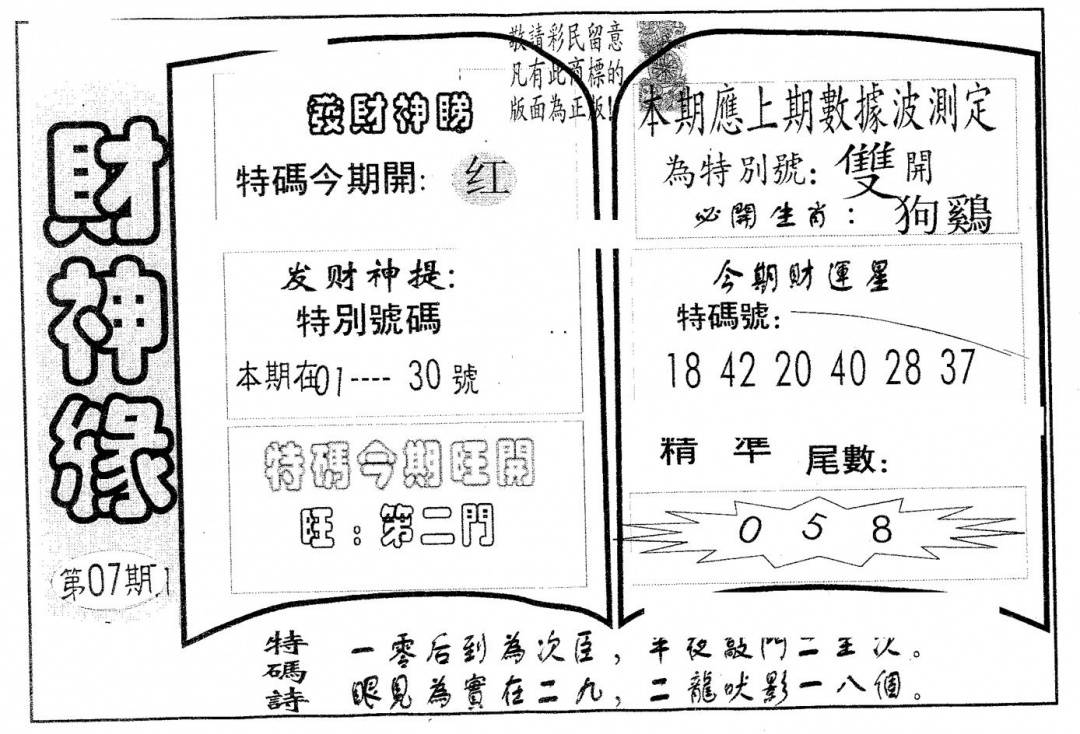 敬請彩民留意
凡有此商標的
版面為正版!
財神緣
第07期
發財神睇
特碼今期開: 红
发财神提:
特別號碼
本期在01----30號
特碼今期旺開
旺:第二門
本期應上期數據波測定
為特別號:雙開
必開生肖:狗鷄
今期財運星
特碼號:
18 42 20 40 28 37
精準尾數:
0 5 8
特碼詩
一零后到為次臣,半夜敲門二至次。
眼見為實在二九,二龍吠影一八個。